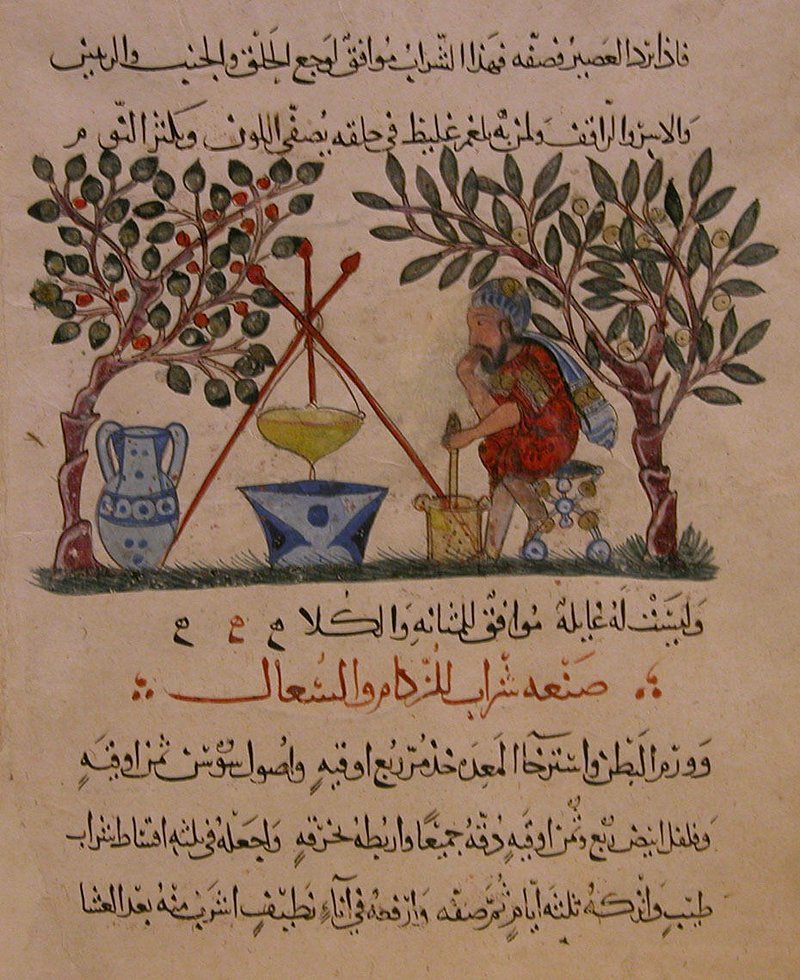 فاذا برد العصير فصفّه فهذا الشراب موافق لوجع الحلق والجنب والريش
والاسر والراقف ولمن به بلغم غليظ في حلقه يصفّي اللون ويكثر النوم م
وليست له غايلة موافق للمثانه والكلا ح ح ح
صنعه شراب للزكام والسعال
وورم البطن واسترخا المعده خذ مرّ ربع اوقيه واصول سوسن ثمن اوقيه
وفلفل ابيض ربع وثمن اوقيه دقّه جميعا واربطه بخرقه واجعله في ثلثه اقساط شراب
طيّب واتركه ثلثه أيام ثمّ صفّه وارفعه في آناء نظيف اشرب منه بعد العشا